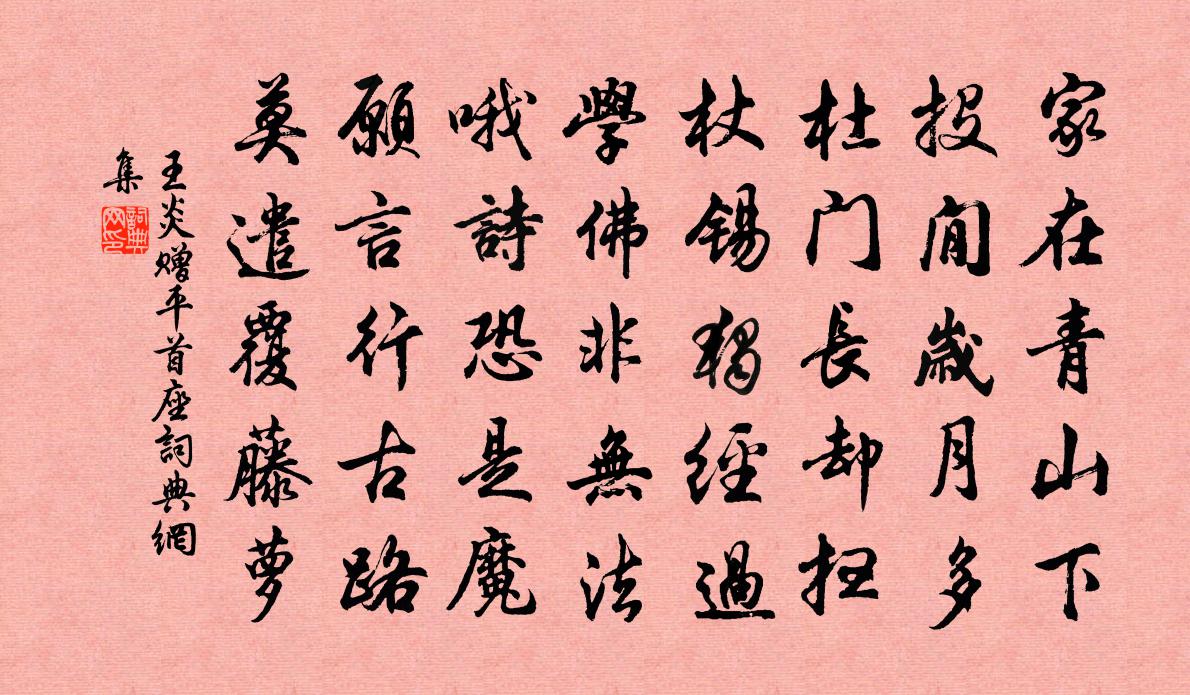 家在青山下
投閒歲月多
杜门長却扫
杖錫獨經過
學佛非無法
哦詩恐是魔
願言行古路
莫遣覆藤萝
王炎贈平首座詞典網
集
詞典网印